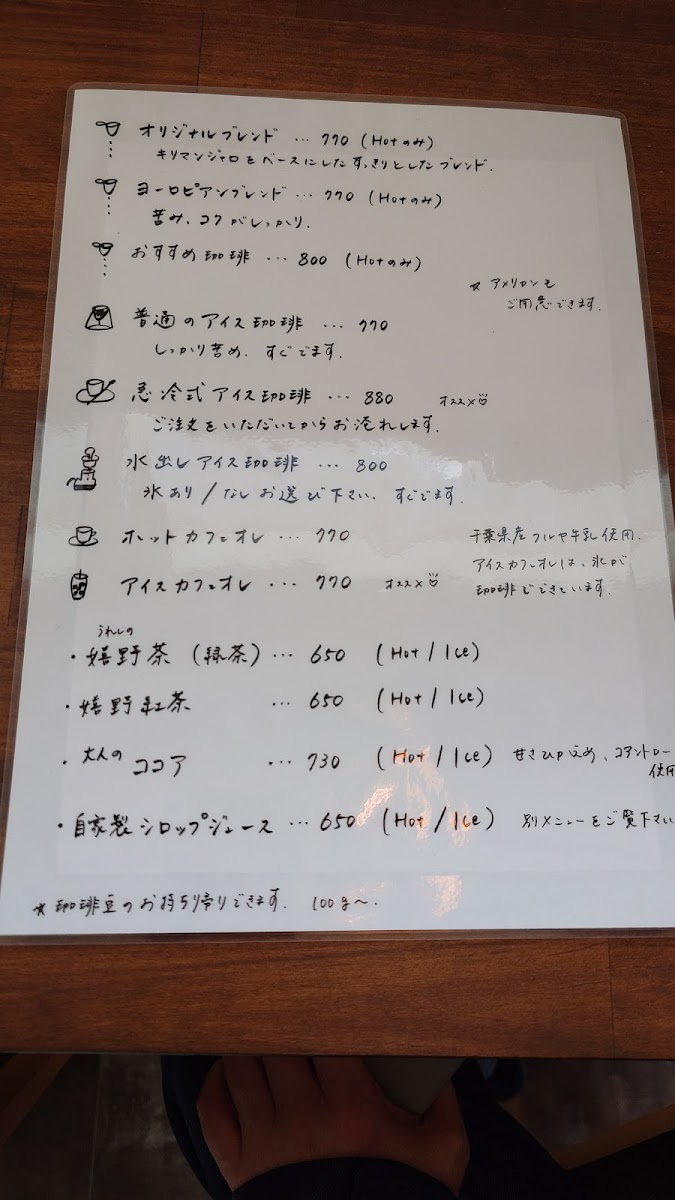 オリジナルブレンド … 770 (Hotのみ)
キリマンジャロをベースにしたすっきりとしたブレンド.
ヨーロピアンブレンド … 770 (Hotのみ)
苦み、コクがしっかり.
おすすめ珈琲 … 800 (Hotのみ)
☆ アメリカンも
ご用意できます.
普通のアイス珈琲 … 770
しっかり苦め. すぐでます.
急冷式アイス珈琲 … 880 オススメ
ご注文をいただいてからお淹れします.
水出しアイス珈琲 … 800
氷あり/なしお選び下さい. すぐでます.
ホットカフェオレ … 770
アイスカフェオレ … 770 オススメ
千葉県産フルヤ牛乳使用.
アイスカフェオレは、氷が
珈琲でできています.
うれしの
・嬉野茶 (緑茶) … 650 (Hot/Ice)
・嬉野紅茶 … 650 (Hot/Ice)
・大人のココア … 730 (Hot/Ice) 甘さひかえめ、コアントロー
使用
・自家製シロップジュース … 650 (Hot/Ice) 別メニューをご覧下さい
☆ 珈琲豆のお持ち帰りできます. 100g〜.